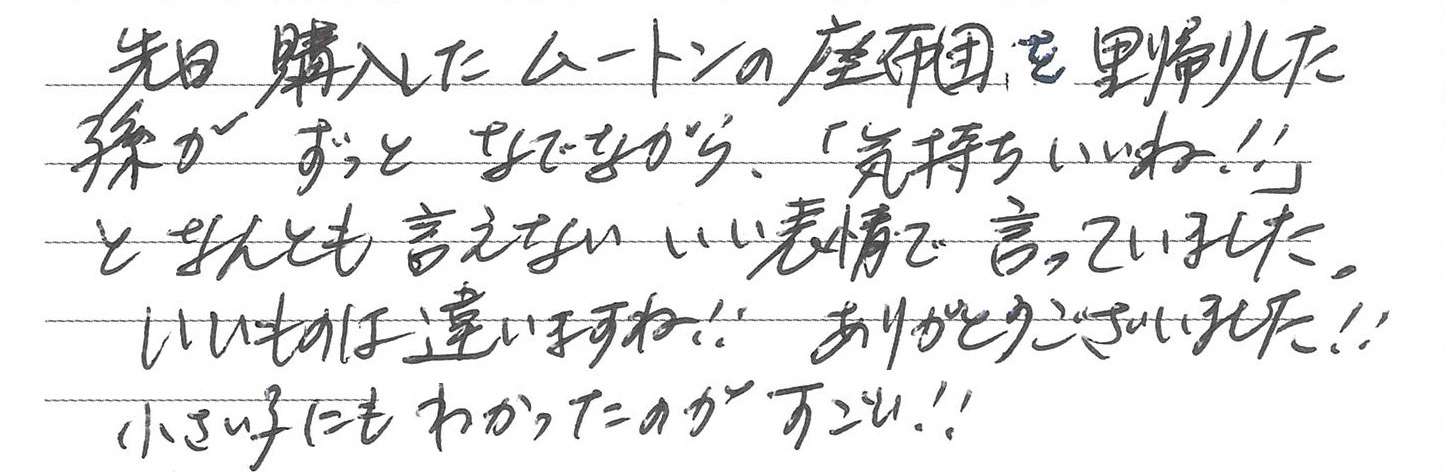 先日 購入した ムートンの 座布団を 里帰りした
孫が ずっと なでながら、「気持ちいいね!!」
と なんとも 言えない いい表情で 言っていました。
いいものは違いますね!! ありがとうございました!!
小さい子にも わかったのが すごい!!